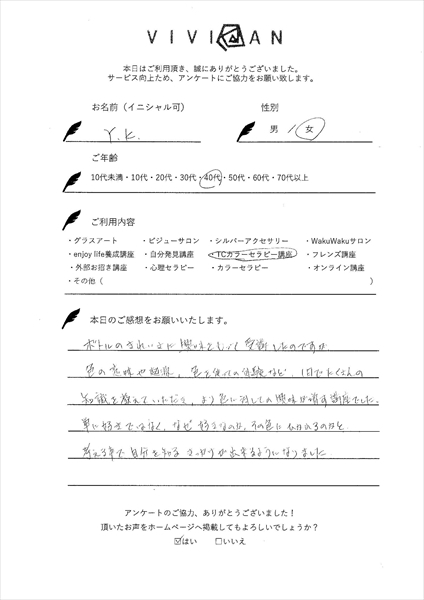 VIVIAN
本日はご利用頂き、誠にありがとうございました。
サービス向上ため、アンケートにご協力をお願い致します。
お名前（イニシャル可）
性別
Y.K.
男 / 女
ご年齢
10代未満・10代・20代・30代・40代・50代・60代・70代以上
ご利用内容
・グラスアート ・ビジューサロン ・シルバーアクセサリー ・WakuWakuサロン
・enjoy life養成講座 ・自分発見講座 ・TCカラーセラピー講座 ・フレンズ講座
・外部お招き講座 ・心理セラピー ・カラーセラピー ・オンライン講座
・その他（ ）
本日のご感想をお願いいたします。
ボトルのきれいさに興味をもって受講したのですが、
色の意味や 、色を使っての体験など、1日でたくさんの
知識を教えていただき、より色に対しての興味が増す講座でした。
単に好きではなく、なぜ好きなのか、その色にひかれるのかを
考える事で自分を知るきっかけが出来るようになりました
アンケートのご協力、ありがとうございました！
頂いたお声をホームページへ掲載してもよろしいでしょうか？
☑はい □いいえ